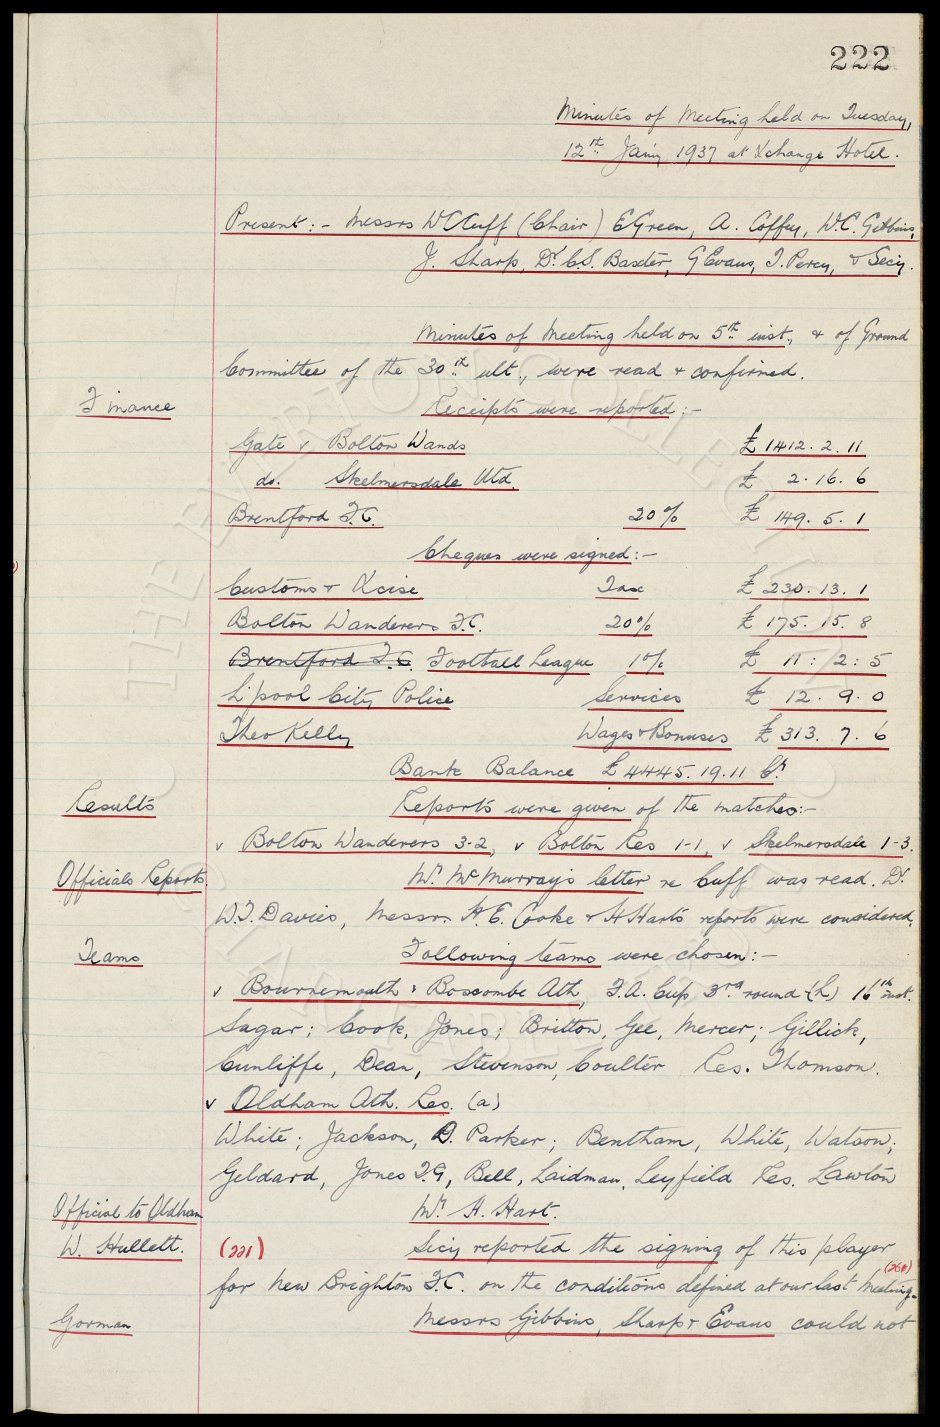 222
Minutes of Meeting held on Tuesday,
12th Jan'y 1937 at Xchange Hotel.
Present:- Messrs W C Cuff (Chair) E Green, A. Coffey, W.C. Gibbins,
J. Sharp, Dr. C.S. Baxter, G Evans, T. Percy, & Secy.
Minutes of Meeting held on 5th inst., & of Ground
Committee of the 30th ult., were read & confirmed.
Finance Receipts were reported:-
Gate v Bolton Wands £1412. 2. 11
do. Skelmersdale Utd. £ 2. 16. 6
Brentford F.C. 20% £ 149. 5. 1
Cheques were signed:-
Customs & Xcise Tax £ 230. 13. 1
Bolton Wanderers F.C. 20% £ 175. 15. 8
Brentford F.C. Football League 1% £ 11: 2: 5
L'pool City Police Services £ 12. 9. 0
Theo Kelly Wages & Bonuses £ 313. 7. 6
Bank Balance £4445. 19. 11 Cr.
Results Reports were given of the matches:-
v Bolton Wanderers 3-2, v Bolton Res 1-1, v Skelmersdale 1-3.
Officials Reports Mr. McMurray's letter re Cuff was read. Dr.
W.T. Davies, Messrs H.E. Cooke & H Hart's reports were considered.
Teams Following teams were chosen:-
v Bournemouth & Boscombe Ath, F.A. Cup 3rd round (h) 16th inst.
Sagar; Cook, Jones; Britton, Gee, Mercer; Gillick,
Cunliffe, Dean, Stevenson, Coulter Res. Thomson.
v Oldham Ath. Res. (a)
White; Jackson, D. Parker; Bentham, White, Watson;
Geldard, Jones T.G, Bell, Laidman, Leyfield Res. Lawton
Official to Oldham Mr. H. Hart.
W. Hullett. (221) Secy reported the signing of this player
for New Brighton F.C. on the conditions defined at our last Meeting.
Gorman Messrs Gibbins, Sharp & Evans could not